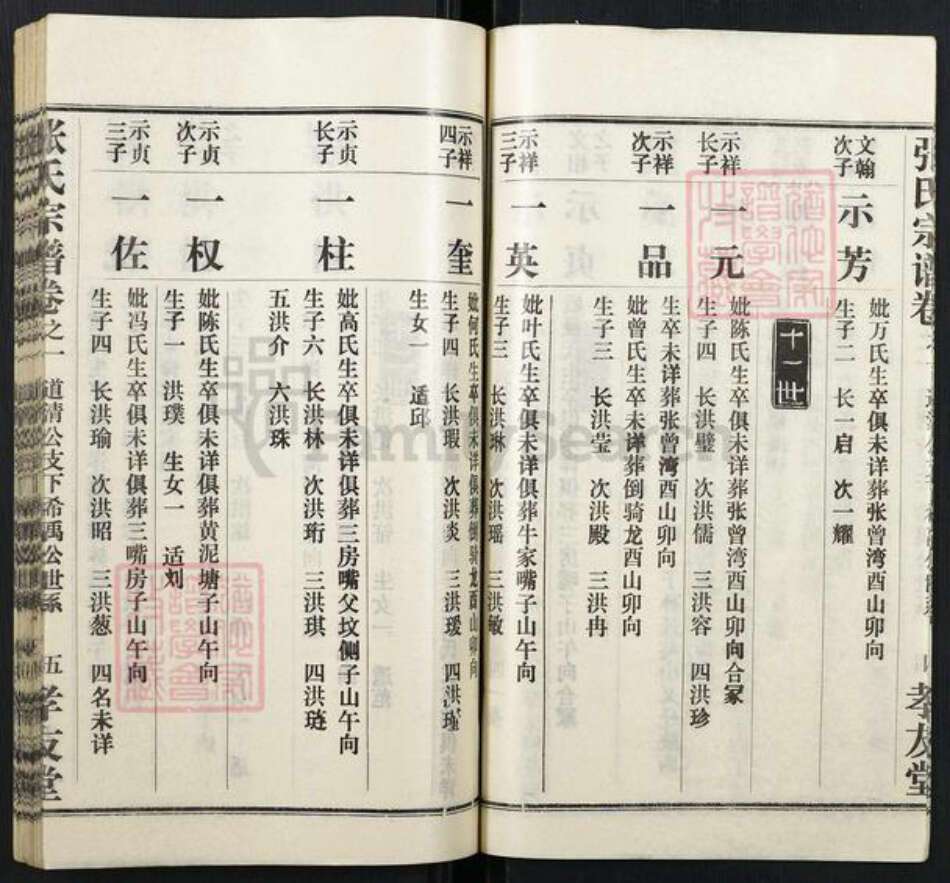 张氏宗谱卷
孝友堂
文翰次子
示芳
妣万氏生卒俱未详葬张曾湾酉山卯向
生子二 长一启 次一耀
十一世
示祥长子
一元
妣陈氏生卒俱未详葬张曾湾酉山卯向合冢
生子四 长洪璧 次洪儒 三洪容 四洪珍
示祥次子
一品
生卒未详葬张曾湾酉山卯向
妣曾氏生卒未详葬倒骑龙酉山卯向
生子三 长洪莹 次洪殿 三洪冉
示祥三子
一英
妣叶氏生卒俱未详俱葬牛家嘴子山午向
生子三 长洪琳 次洪瑶 三洪敏
示祥四子
一奎
妣何氏生卒俱未详俱葬倒骑龙酉山卯向
生子四 长洪瑕 次洪炎 三洪瑗 四洪瑾
生女一 适邱
示贞长子
一柱
妣高氏生卒俱未详俱葬三房嘴父坟侧子山午向
生子六 长洪林 次洪珩 三洪琪 四洪琏
五洪介 六洪珠
示贞次子
一权
妣陈氏生卒俱未详俱葬黄泥塘子山午向
生子一 洪璞 生女一 适刘
示贞三子
一佐
妣冯氏生卒俱未详俱葬三嘴房子山午向
生子四 长洪瑜 次洪昭 三洪葱 四名未详
张氏宗谱卷之一 道清公支下希禹公世系 五 孝友堂
FamilySearch